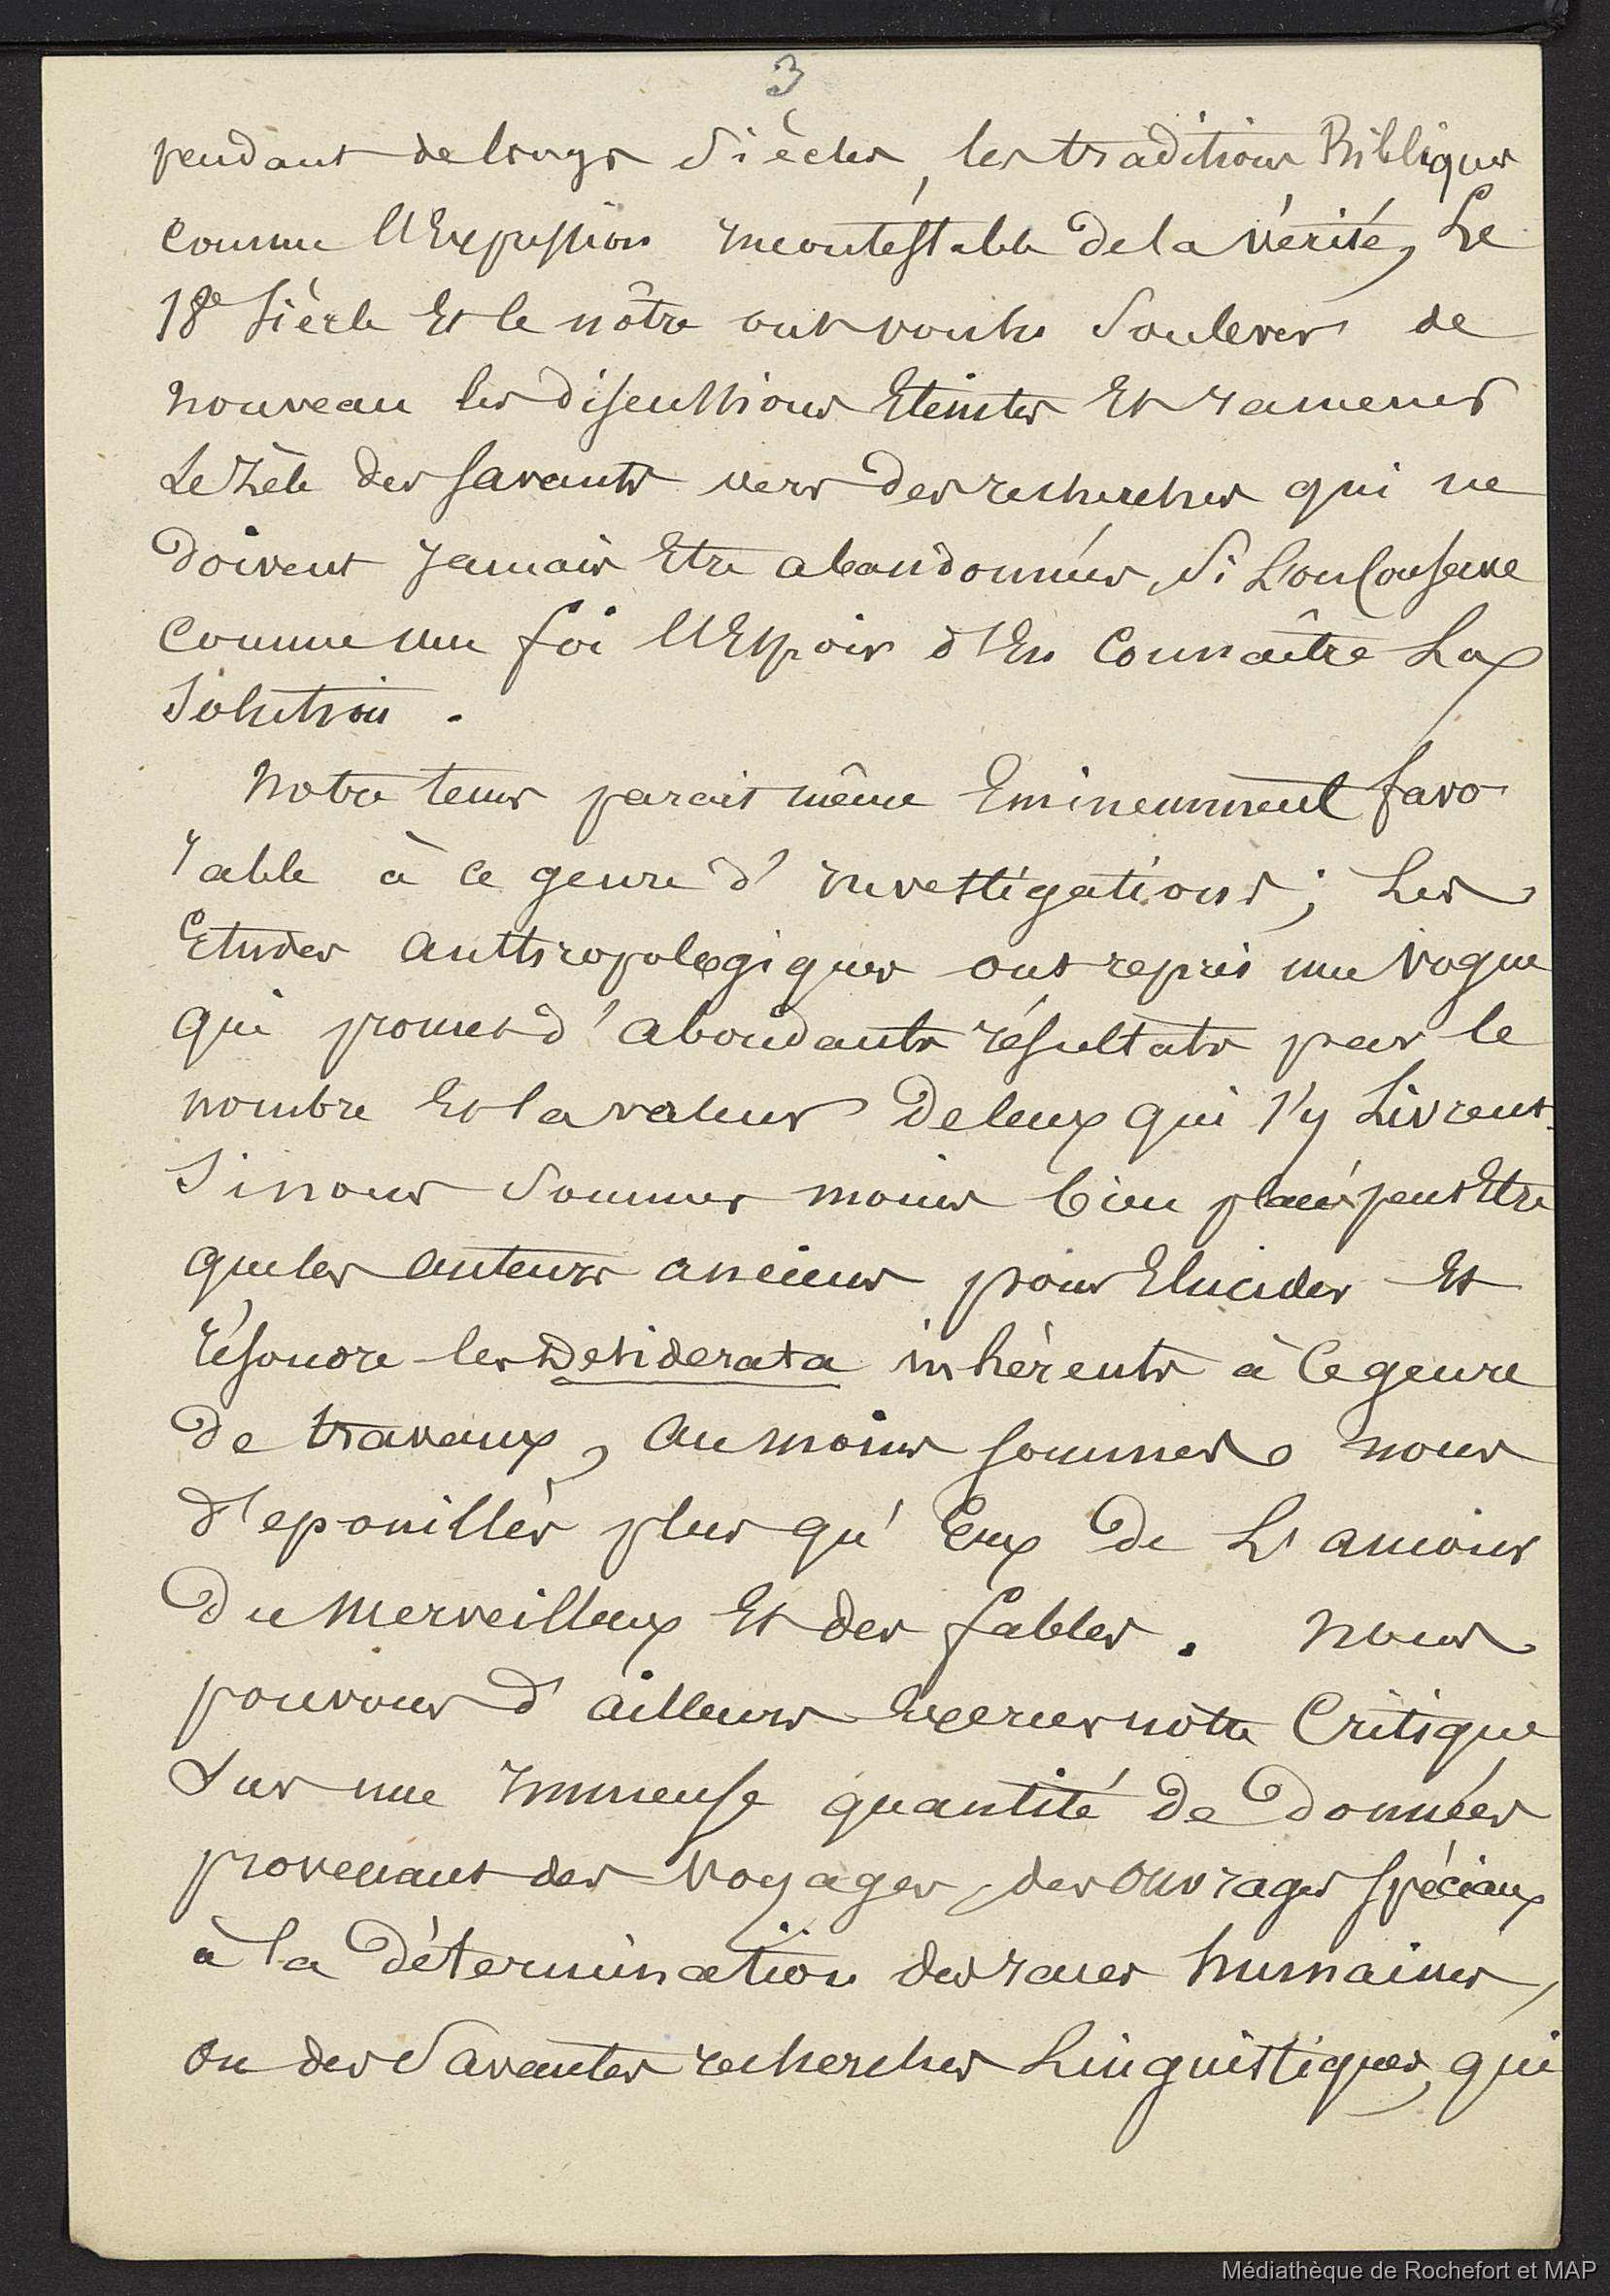 3
pendant de longs Siècles, les traditions Bibliques
comme l'Expression incontestable de la vérité, Le
18e Siècle Et le nôtre ont voulu Soulever de
nouveau les discussions Eteintes Et ramener
Le zèle des savants vers des recherches qui ne
doivent jamais Etre abandonnées, Si L'on Conserve
comme une foi l'Espoir d'En Connaître La
Solution.
Notre tems parait même Eminemment favo
rable à ce genre d'investigations; Les
Etudes anthropologiques ont repris une vogue
qui promet d'abondants résultats par le
nombre Et la valeur de Ceux qui s'y Livrent.
Si nous Sommes moins bien placés peut Etre
que les auteurs anciens pour Elucider Et
résoudre les Desiderata inhérents à Ce genre
de travaux, au moins sommes nous
d'épouillés plus qu'Eux de L'amour
Du merveilleux Et des fables. Nous
pouvons d'ailleurs Exercer notre Critique
Sur une Immense quantité de données
provenant des voyages, des ouvrages spéciaux
à la détermination des races humaines,
ou des Savantes recherches Linguistiques, qui
Médiathèque de Rochefort et MAP